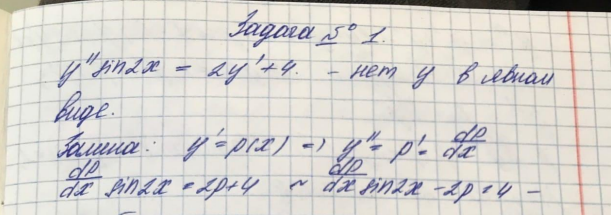 Задача № 1.
y'' sin2x = 2y' + 4. – нет y в явном
виде.
Замена: y' = p(x) => y'' = p' = dp/dx
dp/dx sin2x = 2p+4 ~ dp/dx sin2x – 2p = 4 –